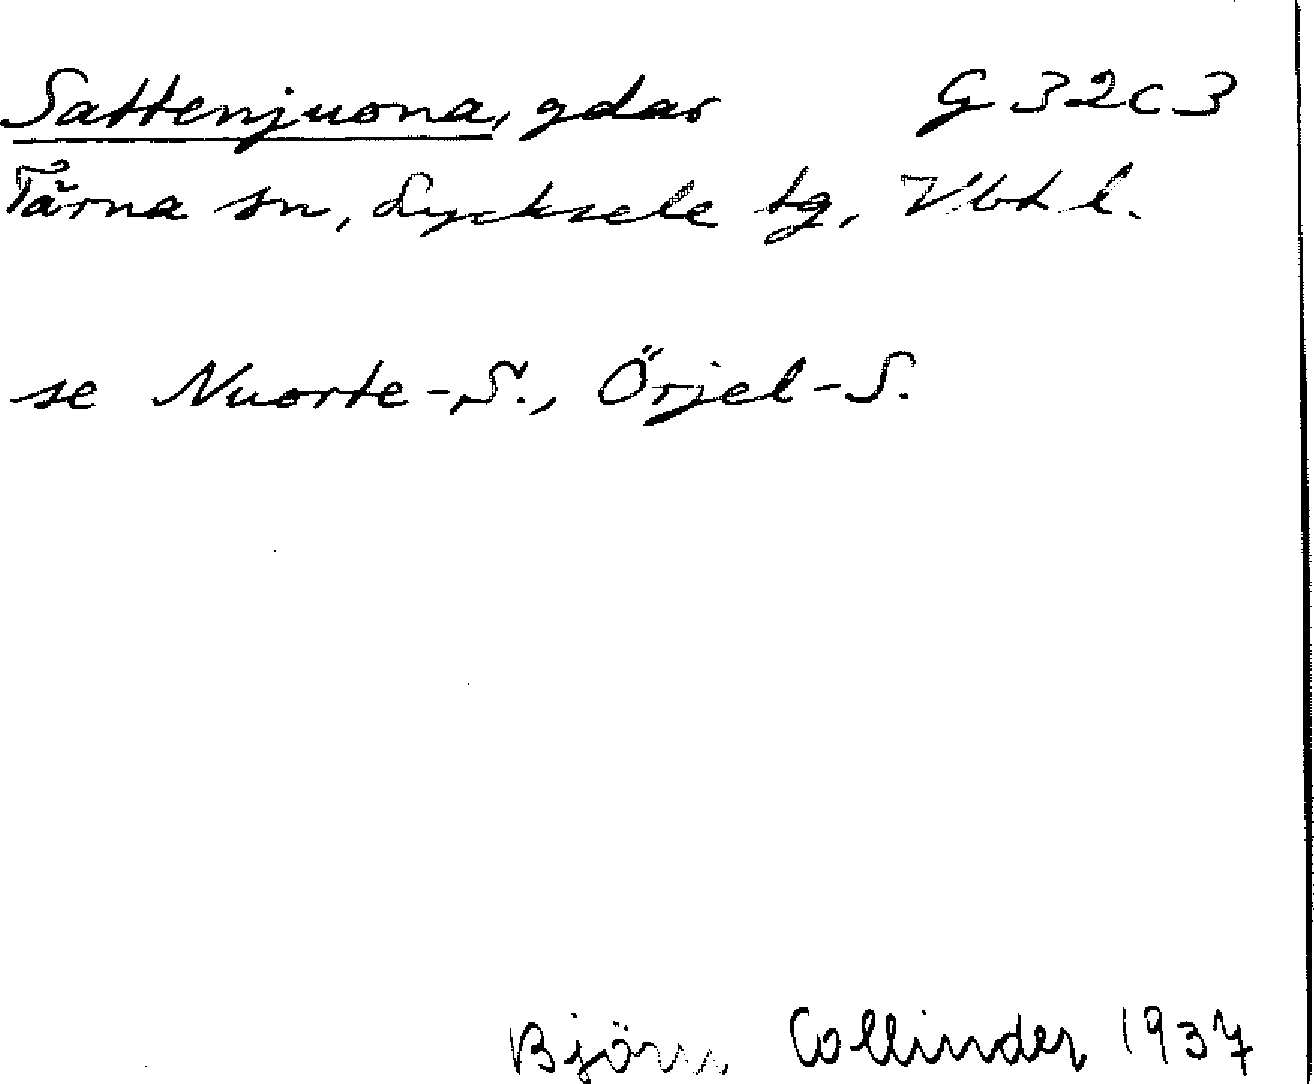 Sattenjuona, gdar G 32 C 3
Tärna sn, Lycksele tg, Vbt l.
se Nuorte-S., Örjel-S.
Björn Collinder 1937